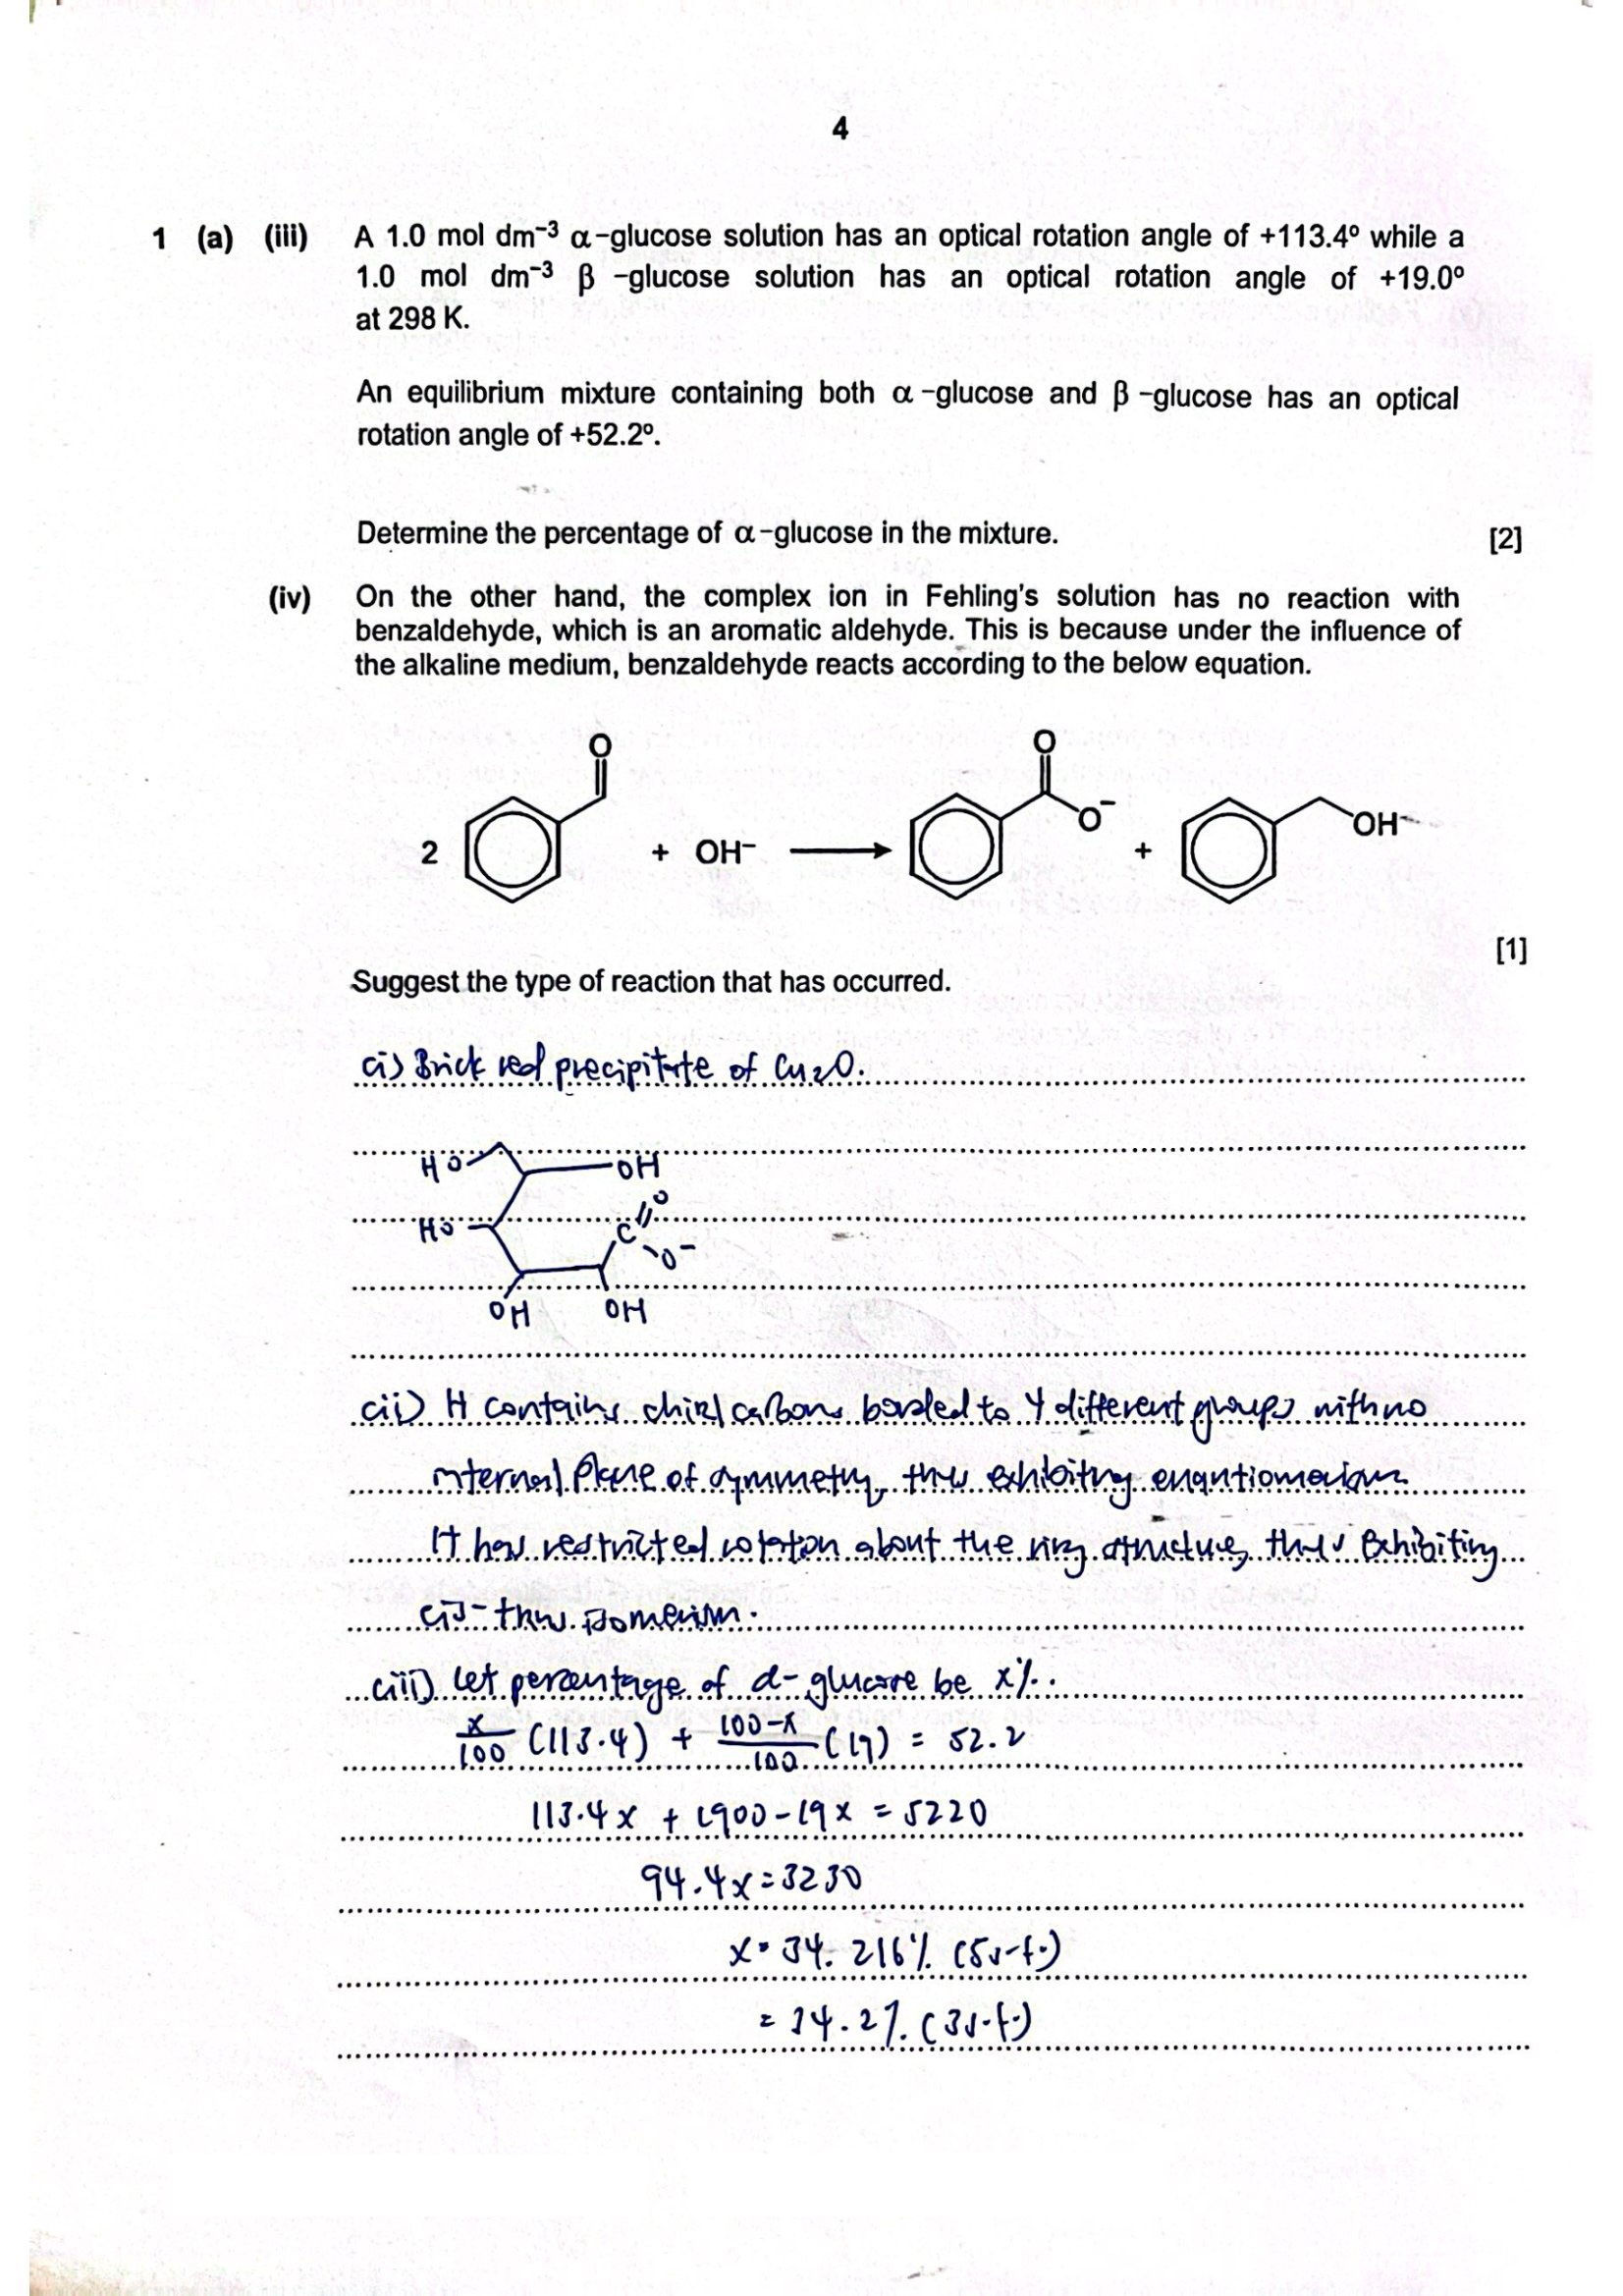 4
1 (a) (iii) A 1.0 mol dm⁻³ α-glucose solution has an optical rotation angle of +113.4º while a
1.0 mol dm⁻³ β -glucose solution has an optical rotation angle of +19.0º
at 298 K.
An equilibrium mixture containing both α -glucose and β -glucose has an optical
rotation angle of +52.2º.
Determine the percentage of α-glucose in the mixture. [2]
(iv) On the other hand, the complex ion in Fehling's solution has no reaction with
benzaldehyde, which is an aromatic aldehyde. This is because under the influence of
the alkaline medium, benzaldehyde reacts according to the below equation.
O O
O⁻ OH
2 + OH⁻ +
[1]
Suggest the type of reaction that has occurred.
(i) Brick red precipitate of Cu₂O.
HO OH
O
HO C
O⁻
OH OH
(ii) H contains chiral carbons bonded to 4 different groups with no
internal plane of symmetry, thus exhibiting enantiomerism
It has restricted rotation about the ring structure, thus exhibiting
cis-trans isomerism.
(iii) Let percentage of α-glucose be x%.
x/100 (113.4) + 100-x/100 (19) = 52.2
113.4x + 1900-19x = 5220
94.4x = 3230
x = 34.216% (5s.f.)
= 34.2% (3s.f.)